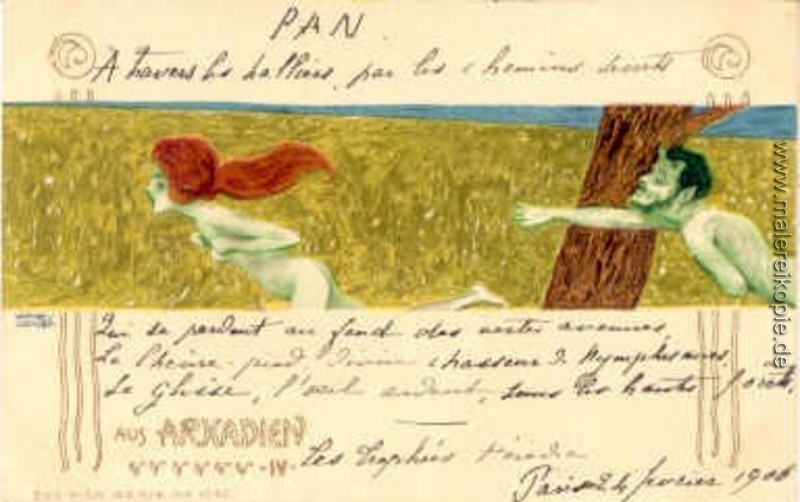 PAN.
A travers les halliers, par les chemins secrets
Qui se perdent au fond des vertes avenues,
Le Chèvre-pied, divin chasseur de Nymphes nues,
Se glisse, l'œil ardent, sous les hautes forêts.
AUS ARKADIEN
IV
Les Trophées Hérédia
Paris 24 février
www.malereikopie.de